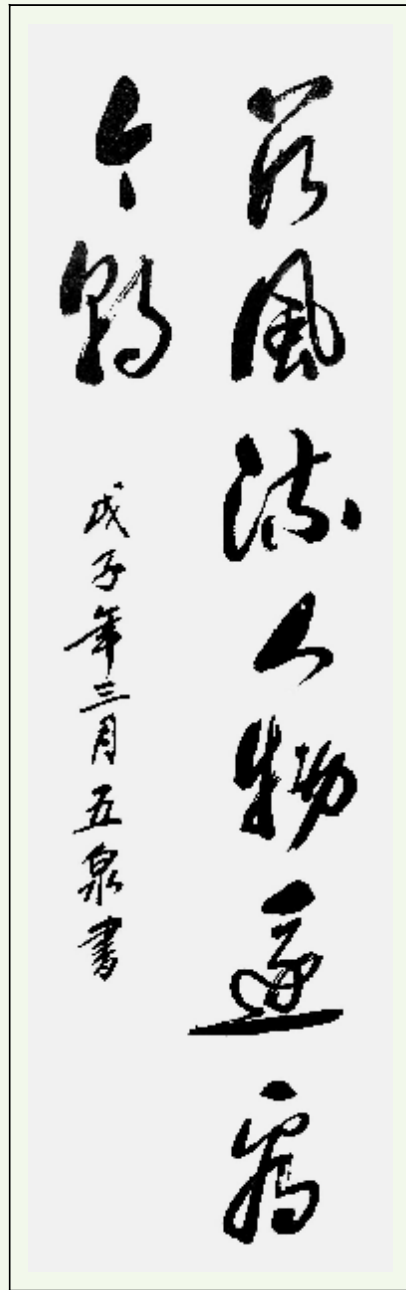 數風流人物還看
今朝
戊子年三月五泉書